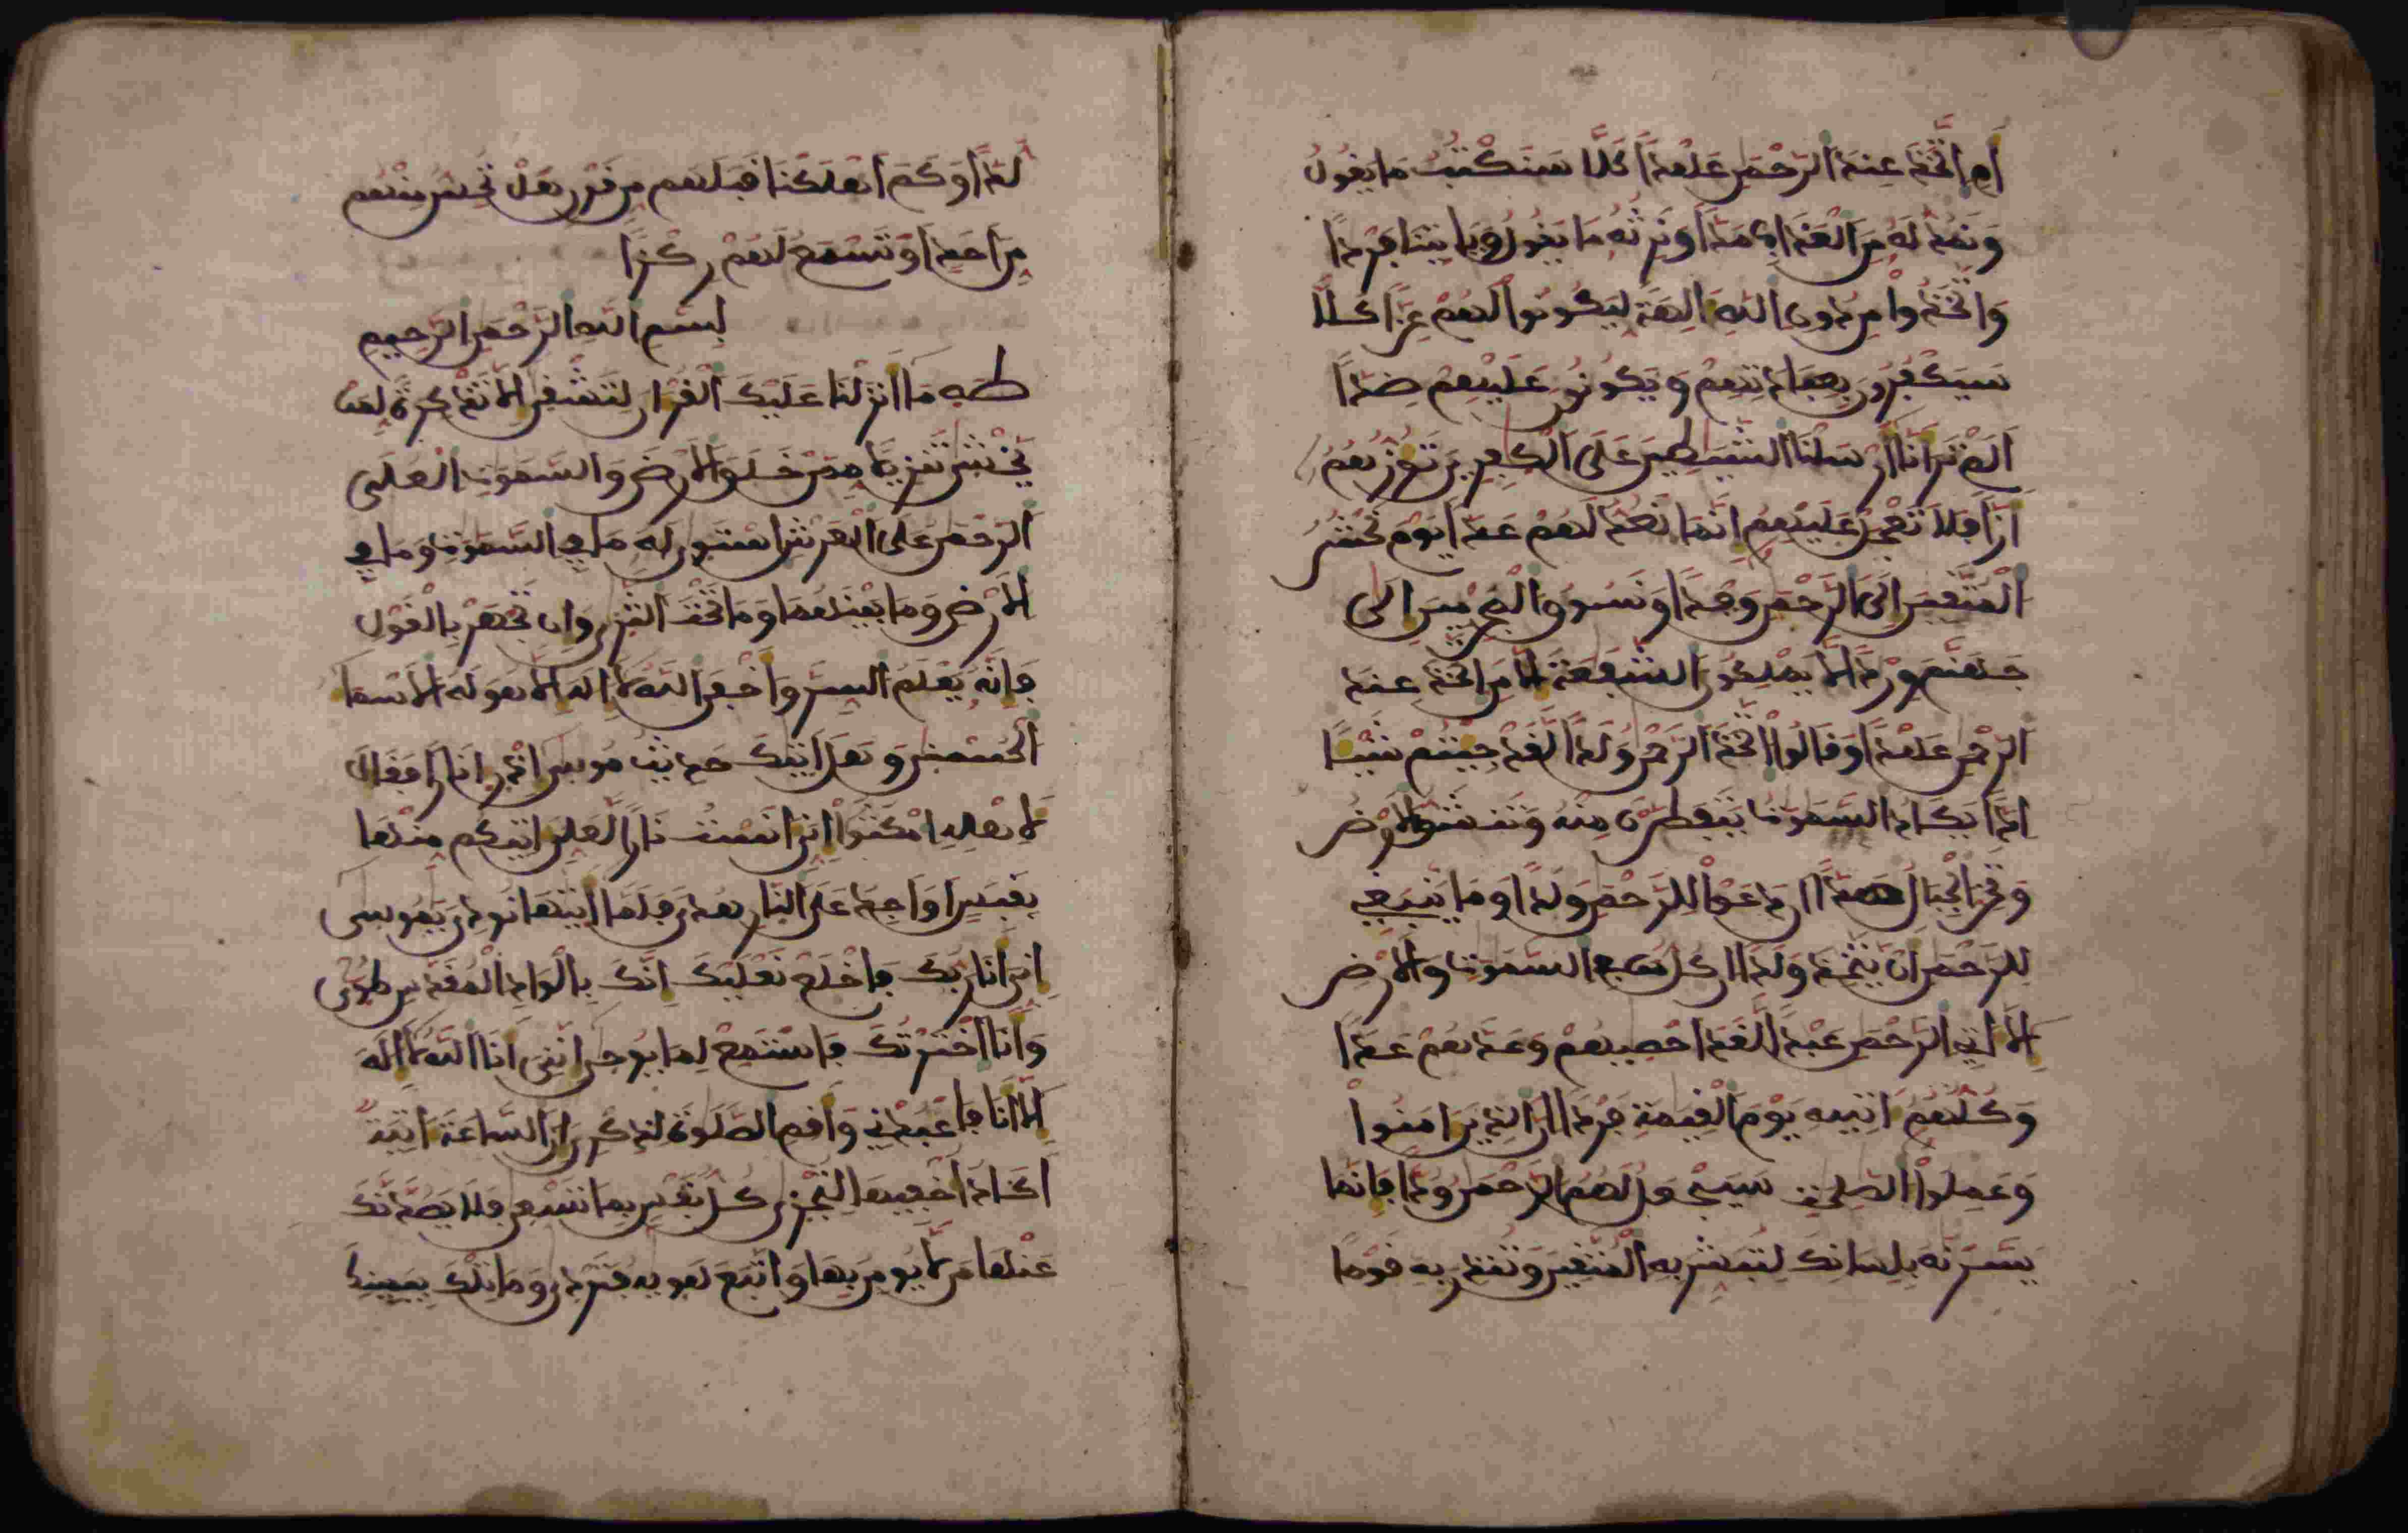 اَمِ اِتَّخَذَ عِندَ اَلرَّحْمَٰنِ عَهْداً كَلَّا سَنَكْتُبُ مَا يَقُولُ
وَنَمُدُّ لَهُ مِنَ اَلْعَذَابِ مَدّاً وَنَرِثُهُ مَا يَقُولُ وَيَاتِينَا فَرْداً
وَاتَّخَذُواْ مِن دُونِ اِللَّهِ ءَالِهَةً لِيَكُونُواْ لَهُمْ عِزّاً كَلَّا
سَيَكْفُرُونَ بِعِبَادَتِهِمْ وَيَكُونُونَ عَلَيْهِمْ ضِدّاً
اَلَمْ تَرَ أَنَّا أَرْسَلْنَا اَلشَّيَٰطِينَ عَلَى اَلْكَٰفِرِينَ تَؤُزُّهُمُ
أَزّاً فَلَا تَعْجَلْ عَلَيْهِمُ إِنَّمَا نَعُدُّ لَهُمْ عَدّاً يَوْمَ نَحْشُرُ
اَلْمُتَّقِينَ إِلَى اَلرَّحْمَٰنِ وَفْداً وَنَسُوقُ اَلْمُجْرِمِينَ إِلَىٰ
جَهَنَّمَ وِرْداً لَّا يَمْلِكُونَ اَلشَّفَٰعَةَ إِلَّا مَنِ اِتَّخَذَ عِندَ
اَلرَّحْمَٰنِ عَهْداً وَقَالُواْ اُتَّخَذَ اَلرَّحْمَٰنُ وَلَداً لَّقَدْ جِئْتُمْ شَيْئاً
اِدّاً يَكَادُ اَلسَّمَٰوَٰتُ يَتَفَطَّرْنَ مِنْهُ وَتَنشَقُّ اَلْأَرْضُ
وَتَخِرُّ اَلْجِبَالُ هَدّاً أَن دَعَوْاْ لِلرَّحْمَٰنِ وَلَداً وَمَا يَنبَغِي
لِلرَّحْمَٰنِ أَنْ يَّتَّخِذَ وَلَداً إِن كُلُّ مَن فِي اِلسَّمَٰوَٰتِ وَالْأَرْضِ
إِلَّا ءَاتِي اِلرَّحْمَٰنِ عَبْداً لَّقَدَ اَحْصَيٰهُمْ وَعَدَّهُمْ عَدّاً
وَكُلُّهُمُ ءَاتِيهِ يَوْمَ اَلْقِيَٰمَةِ فَرْداً إِنَّ اَلذِينَ ءَامَنُواْ
وَعَمِلُواْ اُلصَّٰلِحَٰتِ سَيَجْعَلُ لَهُمُ اُلرَّحْمَٰنُ وُدّاً فَإِنَّمَا
يَسَّرْنَٰهُ بِلِسَانِكَ لِتُبَشِّرَ بِهِ اِلْمُتَّقِينَ وَتُنذِرَ بِهِ قَوْماً
لُدّاً وَكَمَ اَهْلَكْنَا قَبْلَهُم مِن قَرْنٍ هَلْ تُحِسُّ مِنْهُم
مِنَ اَحَدٍ أَوْ تَسْمَعُ لَهُمْ رِكْزاً
بِسْمِ اِللَّهِ اِلرَّحْمَٰنِ اِلرَّحِيمِ
طَهَ مَا أَنزَلْنَا عَلَيْكَ اَلْقُرْءَانَ لِتَشْقَىٰ إِلَّا تَذْكِرَةً لِمَنْ
يَّخْشَىٰ تَنزِيلاً مِمَّنْ خَلَقَ اَلْأَرْضَ وَالسَّمَٰوَٰتِ اِلْعُلَى
اَلرَّحْمَٰنُ عَلَى اَلْعَرْشِ اِسْتَوَىٰ لَهُ مَا فِي اِلسَّمَٰوَٰتِ وَمَا فِي
اِلْأَرْضِ وَمَا بَيْنَهُمَا وَمَا تَحْتَ اَلثَّرَىٰ وَإِن تَجْهَرْ بِالْقَوْلِ
فَإِنَّهُ يَعْلَمُ اُلسِّرَّ وَأَخْفَى اَللَّهُ لَا إِلَٰهَ إِلَّا هُوَ لَهُ اُلْأَسْمَاءُ
اُلْحُسْنَىٰ وَهَلَ اَتَيٰكَ حَدِيثُ مُوسَىٰ إِذْ رَءَا نَاراً فَقَالَ
لِأَهْلِهِ اِمْكُثُواْ إِنِّيَ ءَانَسْتُ نَاراً لَّعَلِّيَ ءَاتِيكُم مِنْهَا
بِقَبَسٍ اَوَ اَجِدُ عَلَى اَلنَّارِ هُدىً فَلَمَّا أَتَيٰهَا نُودِيَ يَٰمُوسَىٰ
إِنِّيَ أَنَا رَبُّكَ فَاخْلَعْ نَعْلَيْكَ إِنَّكَ بِالْوَادِ اِلْمُقَدَّسِ طُوىٰ
وَأَنَا اَخْتَرْتُكَ فَاسْتَمِعْ لِمَا يُوحَىٰ إِنَّنِيَ أَنَا اَللَّهُ لَا إِلَٰهَ
إِلَّا أَنَا فَاعْبُدْنِي وَأَقِمِ اِلصَّلَوٰةَ لِذِكْرِيَ إِنَّ اَلسَّاعَةَ ءَاتِيَةٌ
اَكَادُ أُخْفِيهَا لِتُجْزَىٰ كُلُّ نَفْسٍ بِمَا تَسْعَىٰ فَلَا يَصُدَّنَّكَ
عَنْهَا مَن لَّا يُومِنُ بِهَا وَاتَّبَعَ هَوَيٰهُ فَتَرْدَىٰ وَمَا تِلْكَ بِيَمِينِكَ